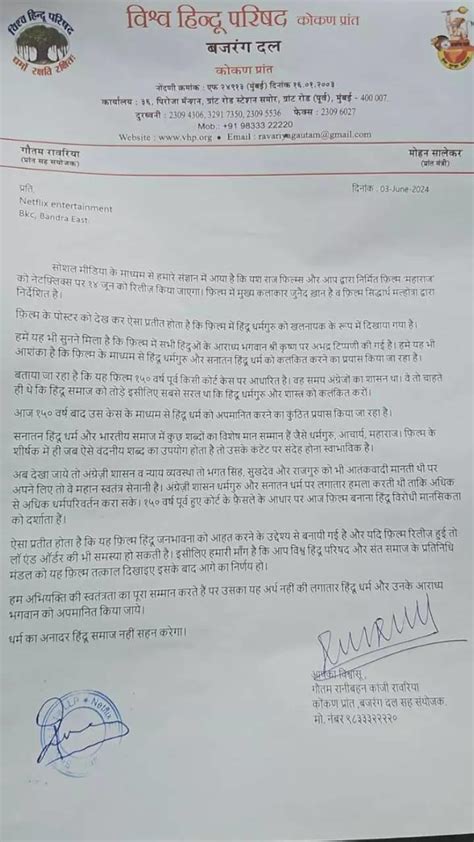 विश्व हिन्दु परिषद
धर्मो रक्षति रक्षितः
विश्व हिन्दु परिषद कोकण प्रांत
बजरंग दल
कोकण प्रांत
नोंदणी क्रमांक : एफ २४९१३ (मुंबई) दिनांक १६.०१.२००३
कार्यालय : ३६, पिरोजा मेन्शन, ग्रांट रोड स्टेशन समोर, ग्रांट रोड (पूर्व), मुंबई - 400 007.
दुरध्वनी : 2309 4306, 3291 7350, 2309 5536 फेक्स : 2309 6027
Mob.: +91 98333 22220
Website : www.vhp.org • Email : ravariyagautam@gmail.com
गौतम रावरिया
(प्रांत सह संयोजक)
मोहन सालेकर
(प्रांत मंत्री)
प्रति,
दिनांक : 03-June-2024
Netflix entertainment
Bkc, Bandra East.
सोशल मीडिया के माध्यम से हमारे संज्ञान में आया है कि यश राज फिल्म्स और आप द्वारा निर्मित फिल्म 'महाराज'
को नेटफ्लिक्स पर १४ जून को रिलीज़ किया जाएगा। फिल्म में मुख्य कलाकार जुनैद ख़ान है व फिल्म सिद्धार्थ मल्होत्रा द्वारा
निर्देशित है।
फ़िल्म के पोस्टर को देख कर ऐसा प्रतीत होता है कि फिल्म में हिंदू धर्मगुरु को खलनायक के रूप में दिखाया गया है।
हमें यह भी सुनने मिला है कि फिल्म में सभी हिंदुओं के आराध्य भगवान श्री कृष्ण पर अभद्र टिप्पणी की गई है। हमे यह भी
आशंका है कि फ़िल्म के माध्यम से हिंदू धर्मगुरु और सनातन हिंदू धर्म को कलंकित करने का प्रयास किया जा रहा है।
बताया जा रहा है कि यह फिल्म १५० वर्ष पूर्व किसी कोर्ट केस पर आधारित है। वह समय अंग्रेजों का शासन था। वे तो चाहते
ही थे कि हिंदू समाज को तोड़े इसीलिए सबसे सरल था कि हिंदू धर्मगुरु और शास्त्र को कलंकित करों।
आज १५० वर्ष बाद उस केस के माध्यम से हिंदू धर्म को अपमानित करने का कुंठित प्रयास किया जा रहा है।
सनातन हिंदू धर्म और भारतीय समाज में कुछ शब्दों का विशेष मान सम्मान हैं जैसे धर्मगुरु, आचार्य, महाराज। फ़िल्म के
शीर्षक में ही जब ऐसे वंदनीय शब्द का उपयोग होता है तो उसके कंटेंट पर संदेह होना स्वाभाविक है।
अब देखा जाये तो अंग्रेज़ी शासन व न्याय व्यवस्था तो भगत सिंह, सुकदेव और राजगुरु को भी आतंकवादी मानती थी पर
अपने लिए तो वे महान स्वतंत्र सेनानी है। अंग्रेज़ी शासन धर्मगुरु और सनातन धर्म पर लगातार हमला करती थी ताकि अधिक
से अधिक धर्मपरिवर्तन करा सके। १५० वर्ष पूर्व हुए कोर्ट के फ़ैसले के आधार पर आज फ़िल्म बनाना हिंदू विरोधी मानसिकता
को दर्शाता है।
ऐसा प्रतीत होता है कि यह फ़िल्म हिंदू जनभावना को आहत करने के उद्देश्य से बनायी गई है और यदि फ़िल्म रिलीज़ हुई तो
लॉ एंड ऑर्डर की भी समस्या हो सकती है। इसीलिए हमारी माँग है कि आप विश्व हिंदू परिषद और संत समाज के प्रतिनिधि
मंडल को यह फ़िल्म तत्काल दिखाइए इसके बाद आगे का निर्णय हो।
हम अभियक्ति की स्वतंत्रता का पूरा सम्मान करते हैं पर उसका यह अर्थ नहीं की लगातार हिंदू धर्म और उनके आराध्य
भगवान को अपमानित किया जाये।
धर्म का अनादर हिंदू समाज नहीं सहन करेगा।
आपका विश्वासू,
गौतम रानीबहन कांजी रावरिया
कोंकण प्रांत ,बजरंग दल सह संयोजक.
मो. नंबर ९८३३३२२२२०
LLP * Netflix